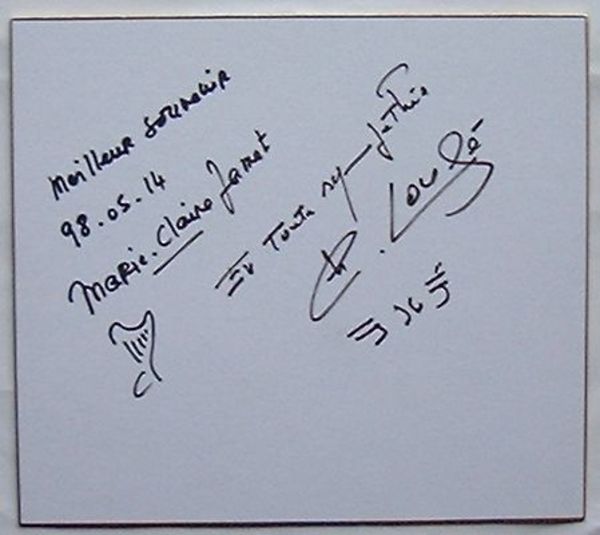 Meilleur souvenir
98.05.14
Marie-Claire Jamet
En toute sympathie
Ch. Lardé
ラルデ